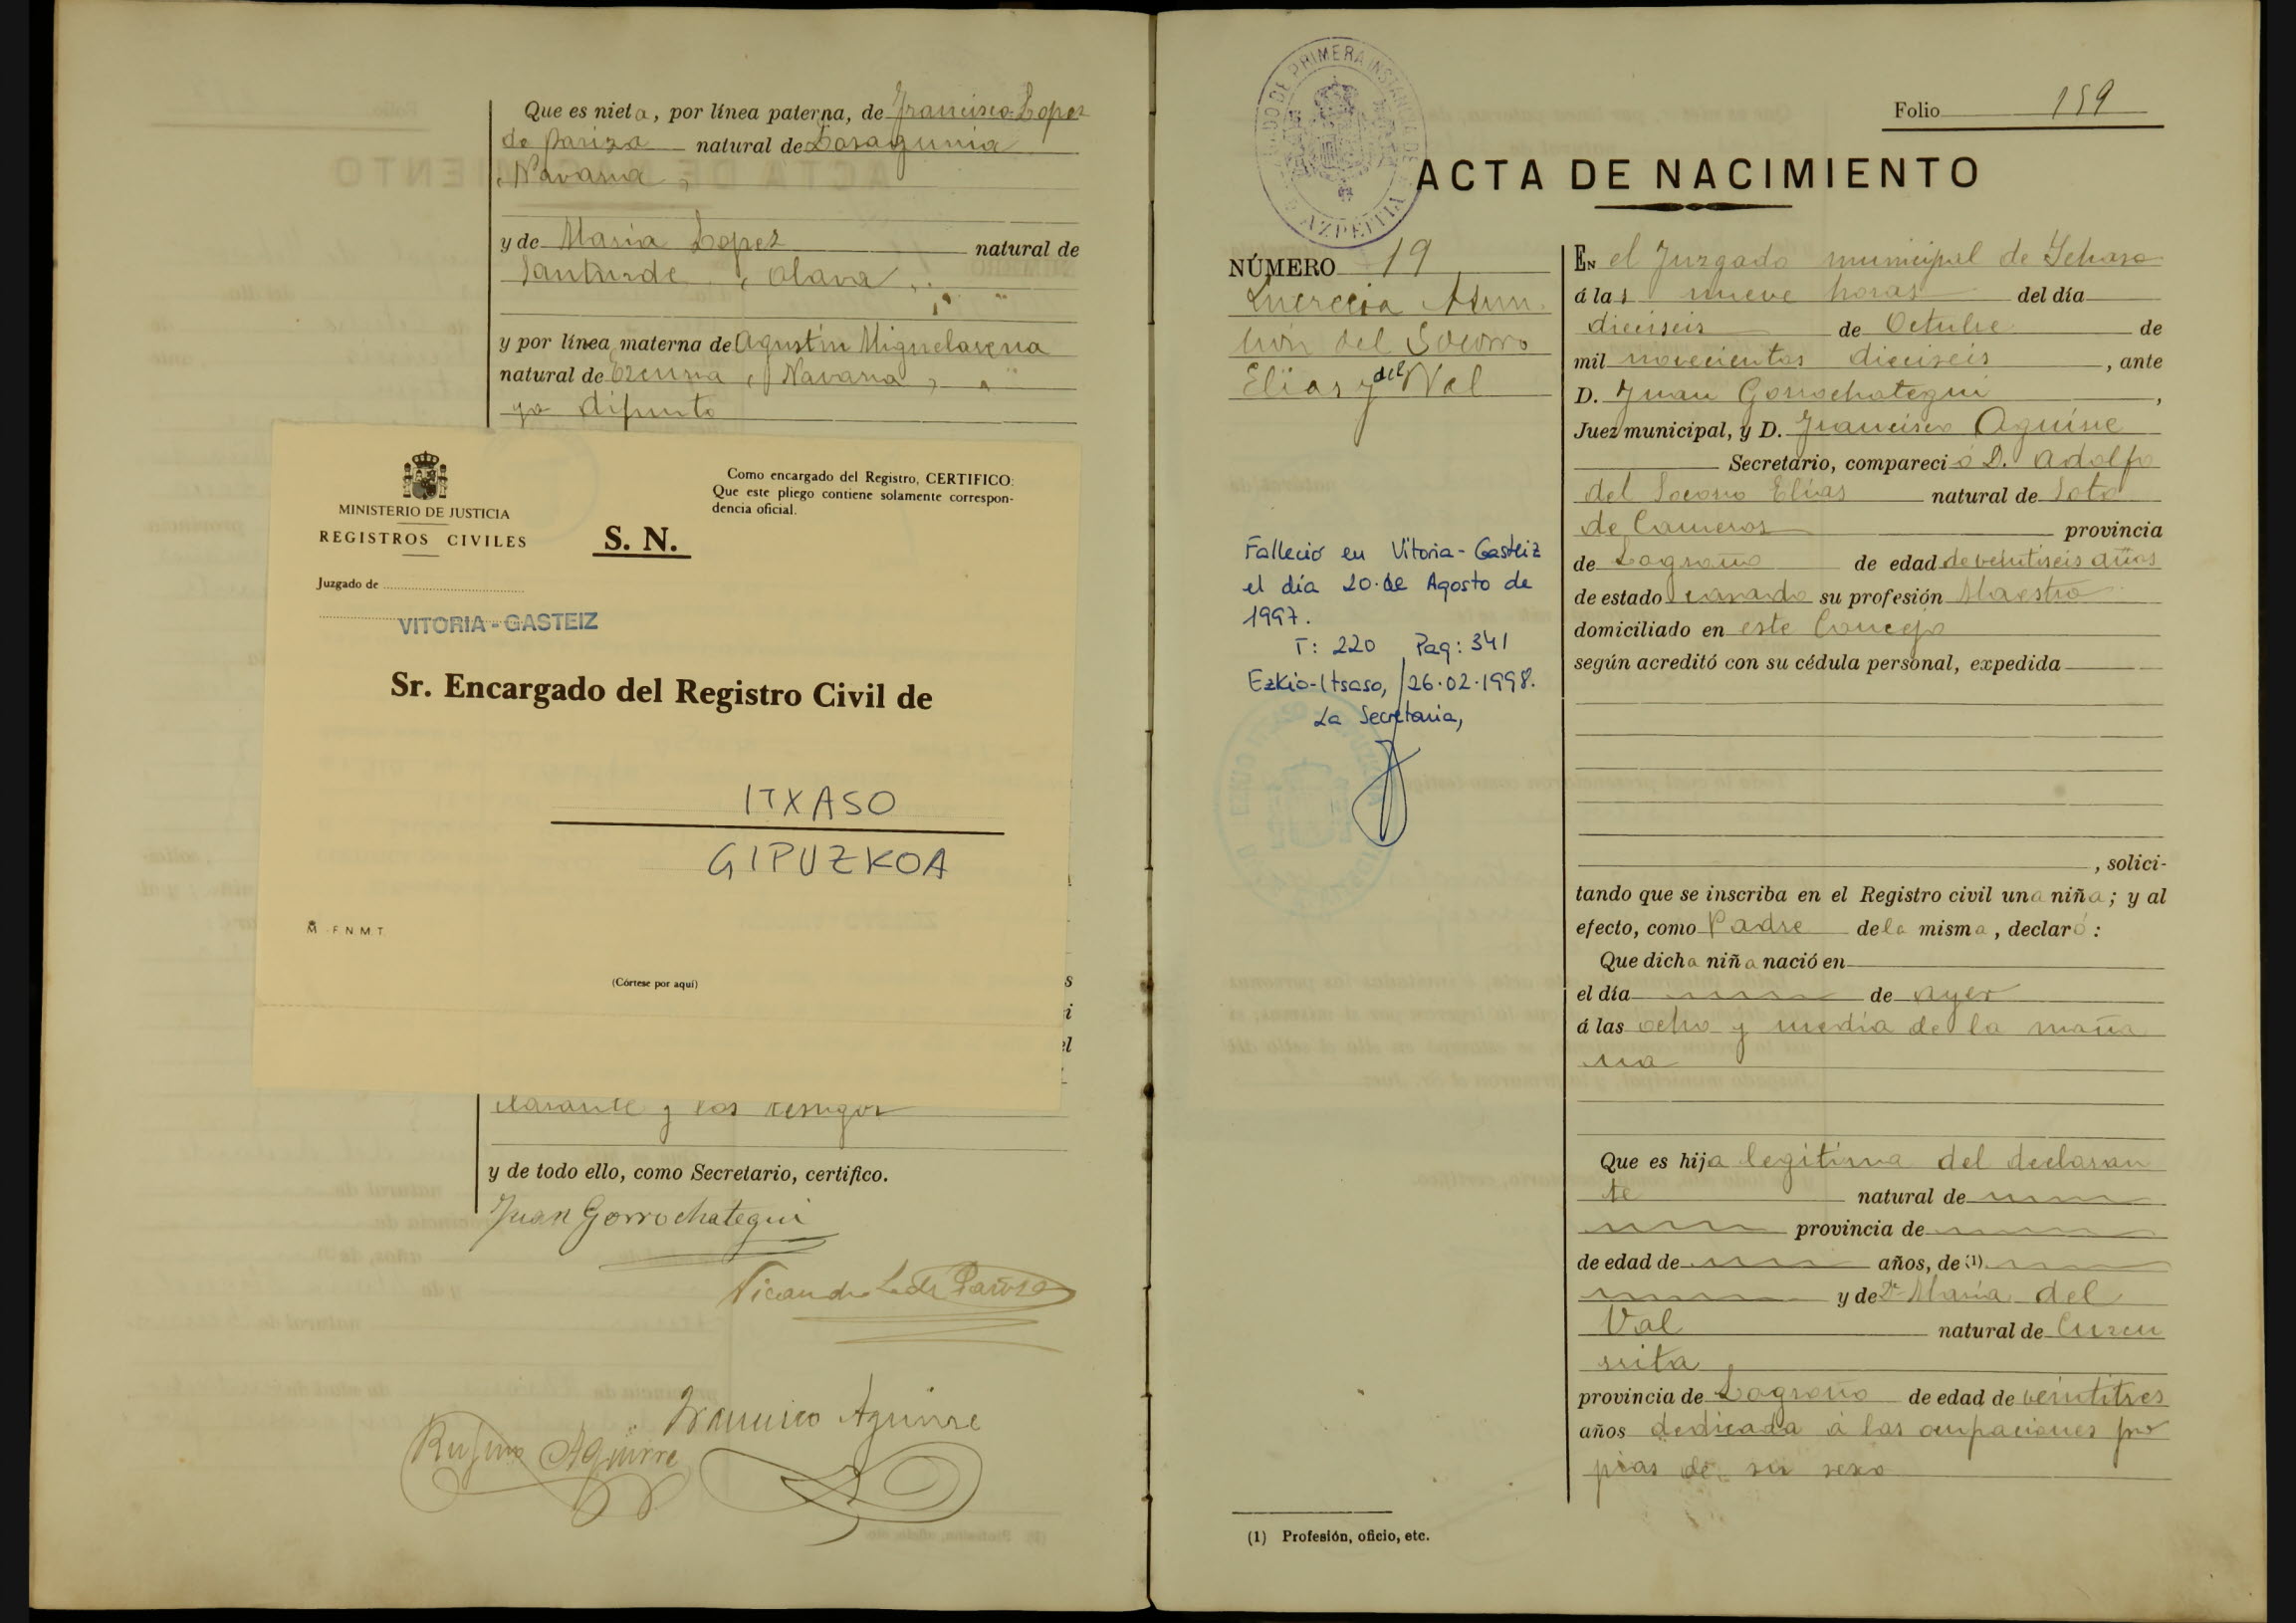 Que es nieta, por línea paterna, de Francisco Lopez
de Pariza natural de
Navarra,
y de Maria Lopez natural de
Santurde, Alava,
y por línea materna de Agustín Miguelarena
natural de Ezcurra, Navarra,
ya difunto
MINISTERIO DE JUSTICIA
REGISTROS CIVILES
S. N.
Como encargado del Registro, CERTIFICO:
Que este pliego contiene solamente correspon-
dencia oficial.
Juzgado de
VITORIA - GASTEIZ
Sr. Encargado del Registro Civil de
ITXASO
GIPUZKOA
F. N. M. T.
(Córtese por aquí)
s
i
el
clarante y los testigos
y de todo ello, como Secretario, certifico.
Juan Gorrochategui
Nicandro L. de Pariza
Francisco Aguirre
Rufino Aguirre
JUZGADO DE PRIMERA INSTANCIA DE AZPEITIA
Folio 159
ACTA DE NACIMIENTO
NÚMERO 19
Lucrecia Asun-
ción del Socorro
Elías y del Val
Fallecio en Vitoria-Gasteiz
el día 20 de Agosto de
1997.
T: 220 Pag: 341
Ezkio-Itsaso, 26.02.1998.
La Secretaria,
En el Juzgado municipal de Ichaso
á las nueve horas del día
dieciseis de Octubre de
mil novecientos dieciseis, ante
D. Juan Gorrochategui,
Juez municipal, y D. Francisco Aguirre
Secretario, compareció D. Adolfo
del Socorro Elías natural de Soto
de Cameros provincia
de Logroño de edad de veintiseis años
de estado casado su profesión Maestro
domiciliado en este Concejo
según acreditó con su cédula personal, expedida
, solici-
tando que se inscriba en el Registro civil una niña; y al
efecto, como Padre de la misma, declaró:
Que dicha niña nació en
el día de ayer
á las ocho y media de la maña
na
Que es hija legitima del declaran
te natural de
provincia de
de edad de años, de (1)
y de Dª María del
Val natural de Cuzcu
rrita
provincia de Logroño de edad de veintitres
años dedicada á las ocupaciones pro
pias de su sexo
(1) Profesión, oficio, etc.